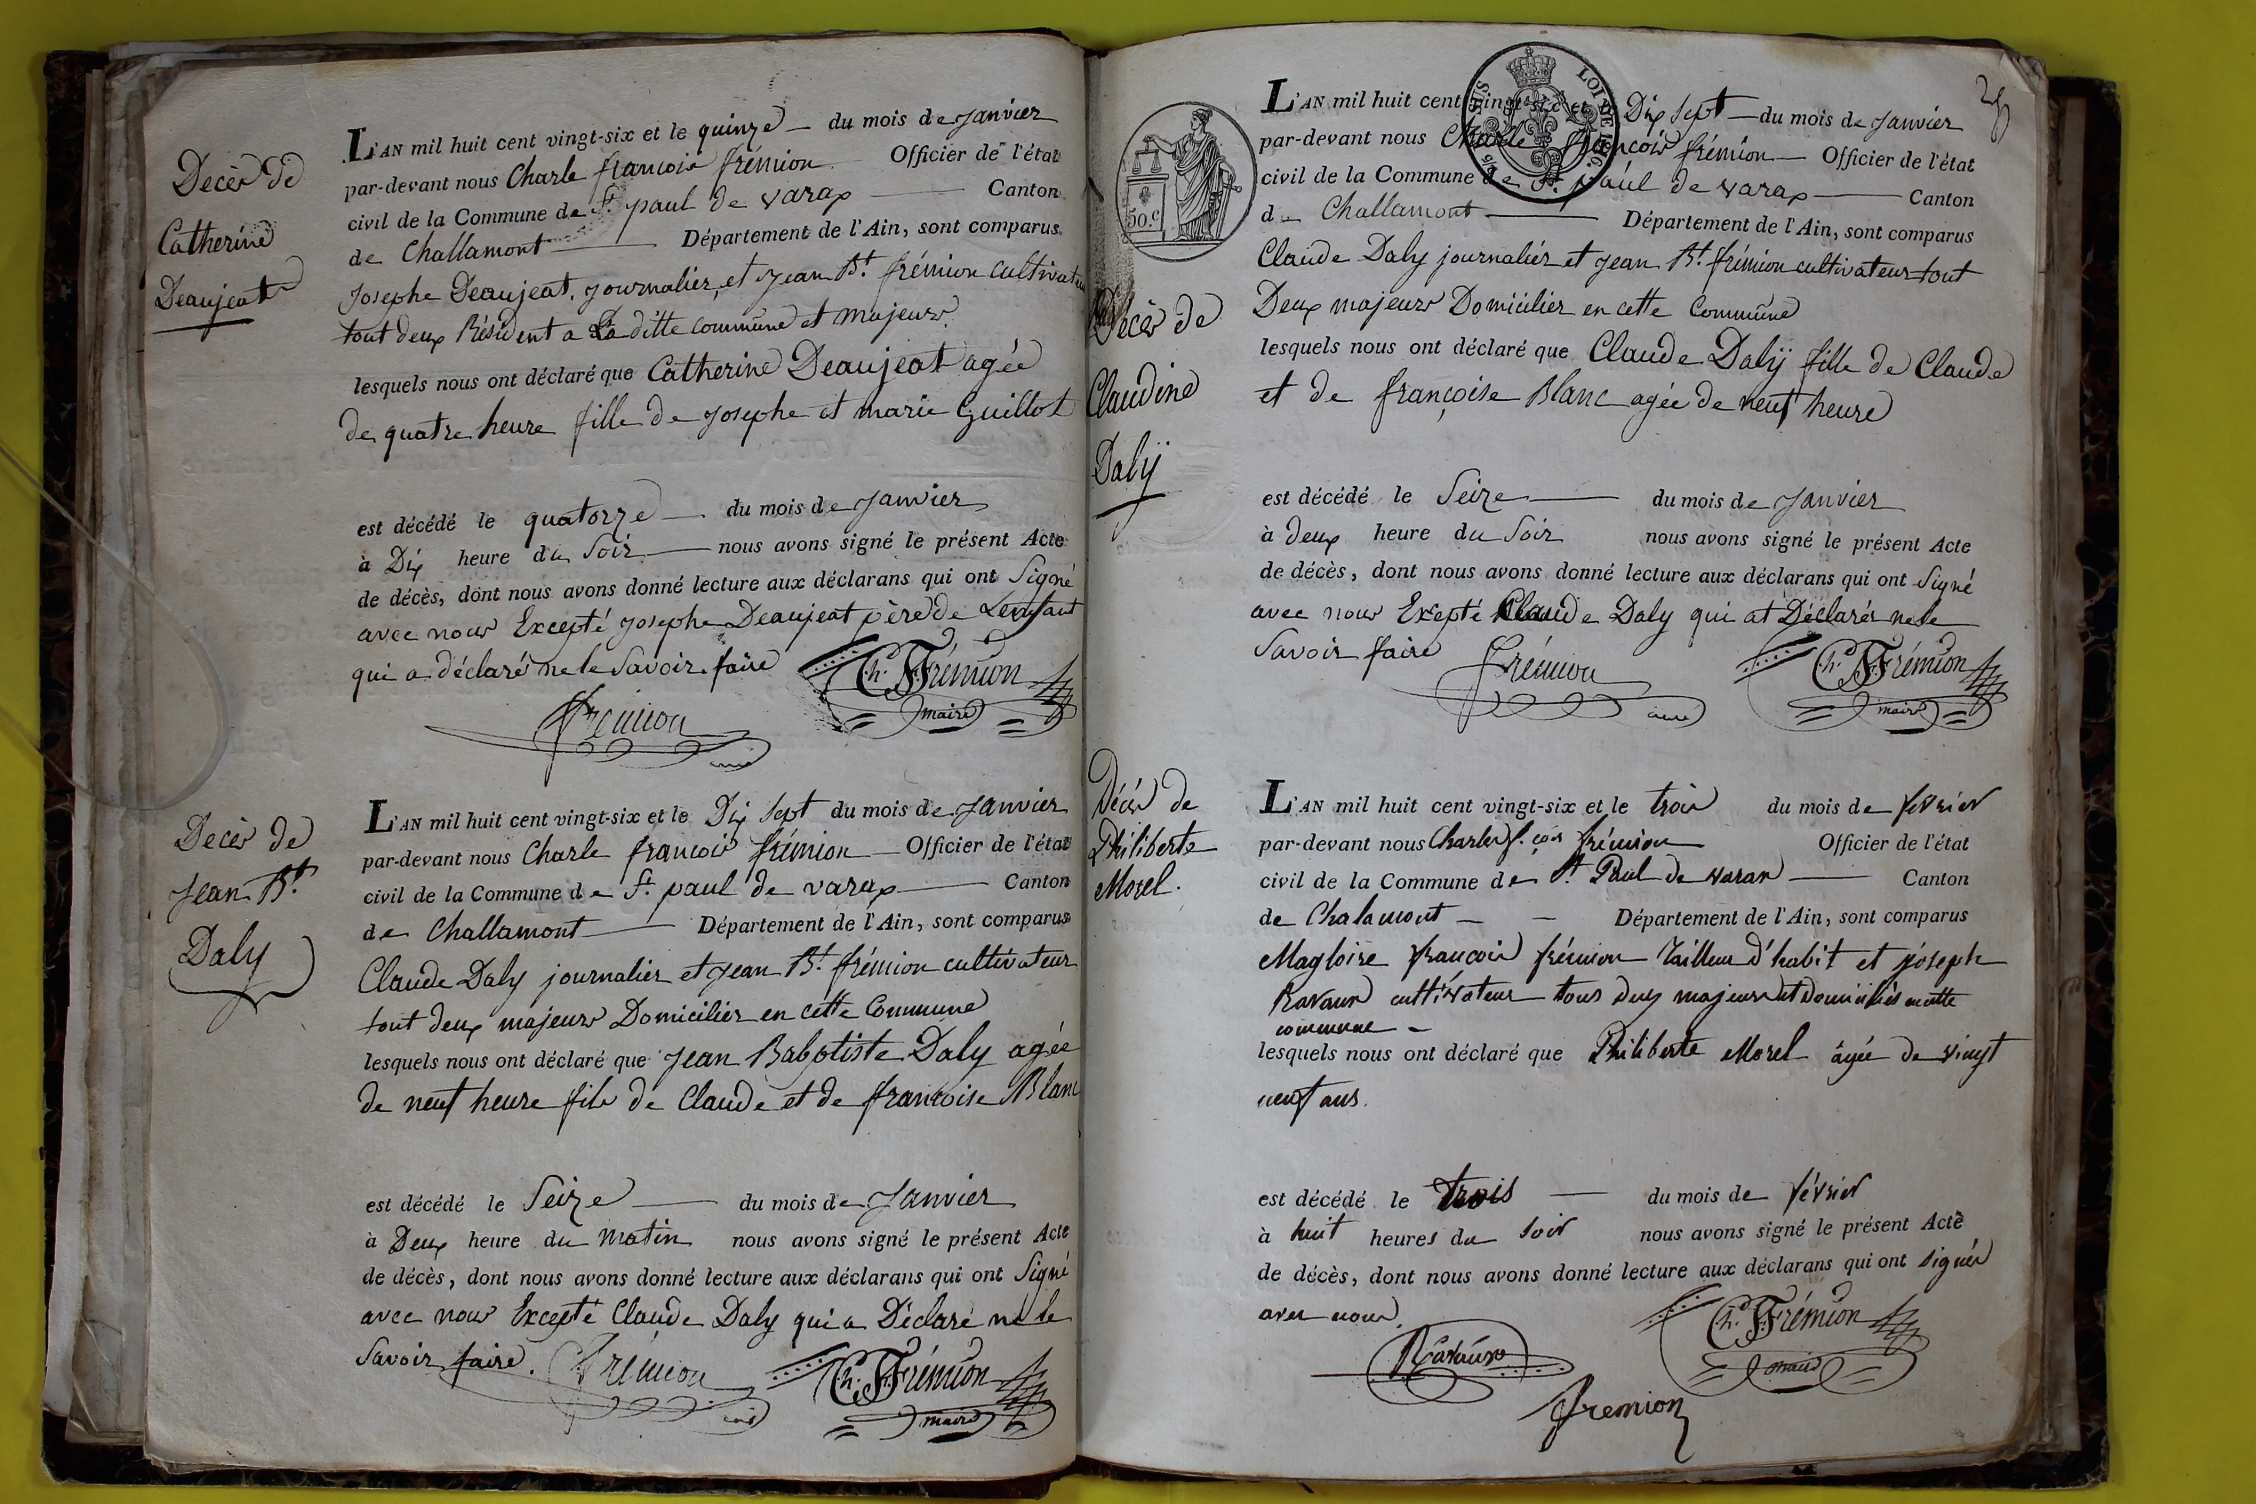 Decès de
Catherine
Deaujeat
L'AN mil huit cent vingt-six et le quinze du mois de Janvier
par-devant nous Charle françois frémion Officier de l'état
civil de la Commune de St. paul de varax Canton
de Challamont Département de l'Ain, sont comparus
Josephe Deaujeat, journalier, et jean Bt. frémion cultivateur
tout deux Résident a La ditte commune et majeurs.
lesquels nous ont déclaré que Catherine Deaujeat agée
de quatre heure fille de Josephe et marie Guillot
est décédé le quatorze du mois de Janvier
à Dix heure du Soir nous avons signé le présent Acte
de décès, dont nous avons donné lecture aux déclarans qui ont Signé
avec nous Excepté josephe Deaujeat père de Lenfant
qui a déclaré ne le Savoir faire
Ch. F. Frémion
maire
frémion
Decès de
Jean Bt.
Daly
L'AN mil huit cent vingt-six et le Dix Sept du mois de Janvier
par-devant nous Charle françois frémion Officier de l'état
civil de la Commune de St. paul de varax Canton
de Challamont Département de l'Ain, sont comparus
Claude Daly journalier et jean Bt. frémion cultivateur
tout deux majeurs Domicilier en cette Commune
lesquels nous ont déclaré que Jean Babptiste Daly agée
de neuf heure fils de Claude et de françoise Blanc
est décédé le Seize du mois de Janvier
à Deux heure du Matin nous avons signé le présent Acte
de décès, dont nous avons donné lecture aux déclarans qui ont Signé
avec nous Excepté Claude Daly qui a Déclaré ne le
Savoir faire.
frémion
Ch. F. Frémion
maire
LOI DE 1816.
50.c
Décès de
Claudine
Dalÿ
L'AN mil huit cent vingt-six et le Dix Sept du mois de Janvier
par-devant nous Charle françois frémion Officier de l'état
civil de la Commune de St. paul de varax Canton
de Challamont Département de l'Ain, sont comparus
Claude Daly journalier et jean Bt. frémion cultivateur tout
Deux majeurs Domicilier en cette Commune
lesquels nous ont déclaré que Claude Dalÿ fille de Claude
et de françoise Blanc agée de neuf heure
est décédé le Seize du mois de Janvier
à deux heure du Soir nous avons signé le présent Acte
de décès, dont nous avons donné lecture aux déclarans qui ont Signé
avec nous Excepté Claude Daly qui at Déclarér ne le
Savoir faire
frémion
Ch. F. Frémion
maire
Décès de
Philiberte
Morel.
L'AN mil huit cent vingt-six et le trois du mois de février
par-devant nous Charles f.çois frémion Officier de l'état
civil de la Commune de St. Paul de varax Canton
de Chalamont Département de l'Ain, sont comparus
Magloire françois frémion Tailleur d'habit et joseph
Ravaux cultivateur tous deux majeurs et Domiciliés en cette
commune
lesquels nous ont déclaré que Philiberte Morel âgée de vingt
neuf ans.
est décédé le trois du mois de février
à huit heures du soir nous avons signé le présent Acte
de décès, dont nous avons donné lecture aux déclarans qui ont signés
avec nous.
Ravaux
Ch. F. Frémion
maire
fremion